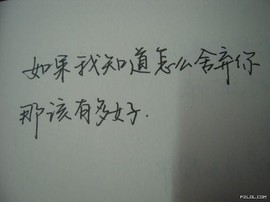 如果我知道怎么舍弃你
那该有多好.
PZLDL.COM